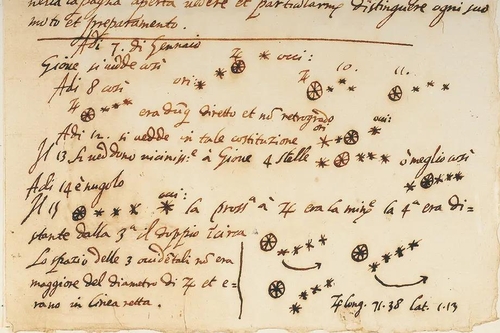 nella capagna aperta vedere et particularmẽ distinguere ogni suo
moto et preparamento.
Adi 7. di Gennaio
Giove si vedde così ♃ occi:
Adi 8 così ori: ♃ 10. 11.
♃ era dũq diretto et nõ retrogrado
Adi 12. si vedde in tale costituzione ori occi:
Il 13 si veddono vicinissᵉ à Giove 4 stelle ò meglio così
Adi 14 è nugolo
Il 15 occi: la prossᵃ à ♃ era la minᵉ la 4ᵃ era di=
stante dalla 3ᵃ il doppio
Lo spazio delle 3 occidetali nõ era
maggiore del diametro di ♃ et e=
rano in linea retta.
♃ long. 71.38 Lat. 1.13